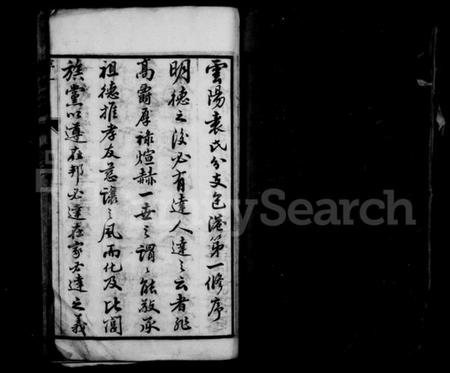 雲陽袁氏分支包港第一修序
明德之後必有達人達之云者非
高爵厚祿煊赫一世之謂謂能敬承
祖德推孝友慈讓之風而化及比閭
族黨以導在邦必達在家必達之義
FamilySearch